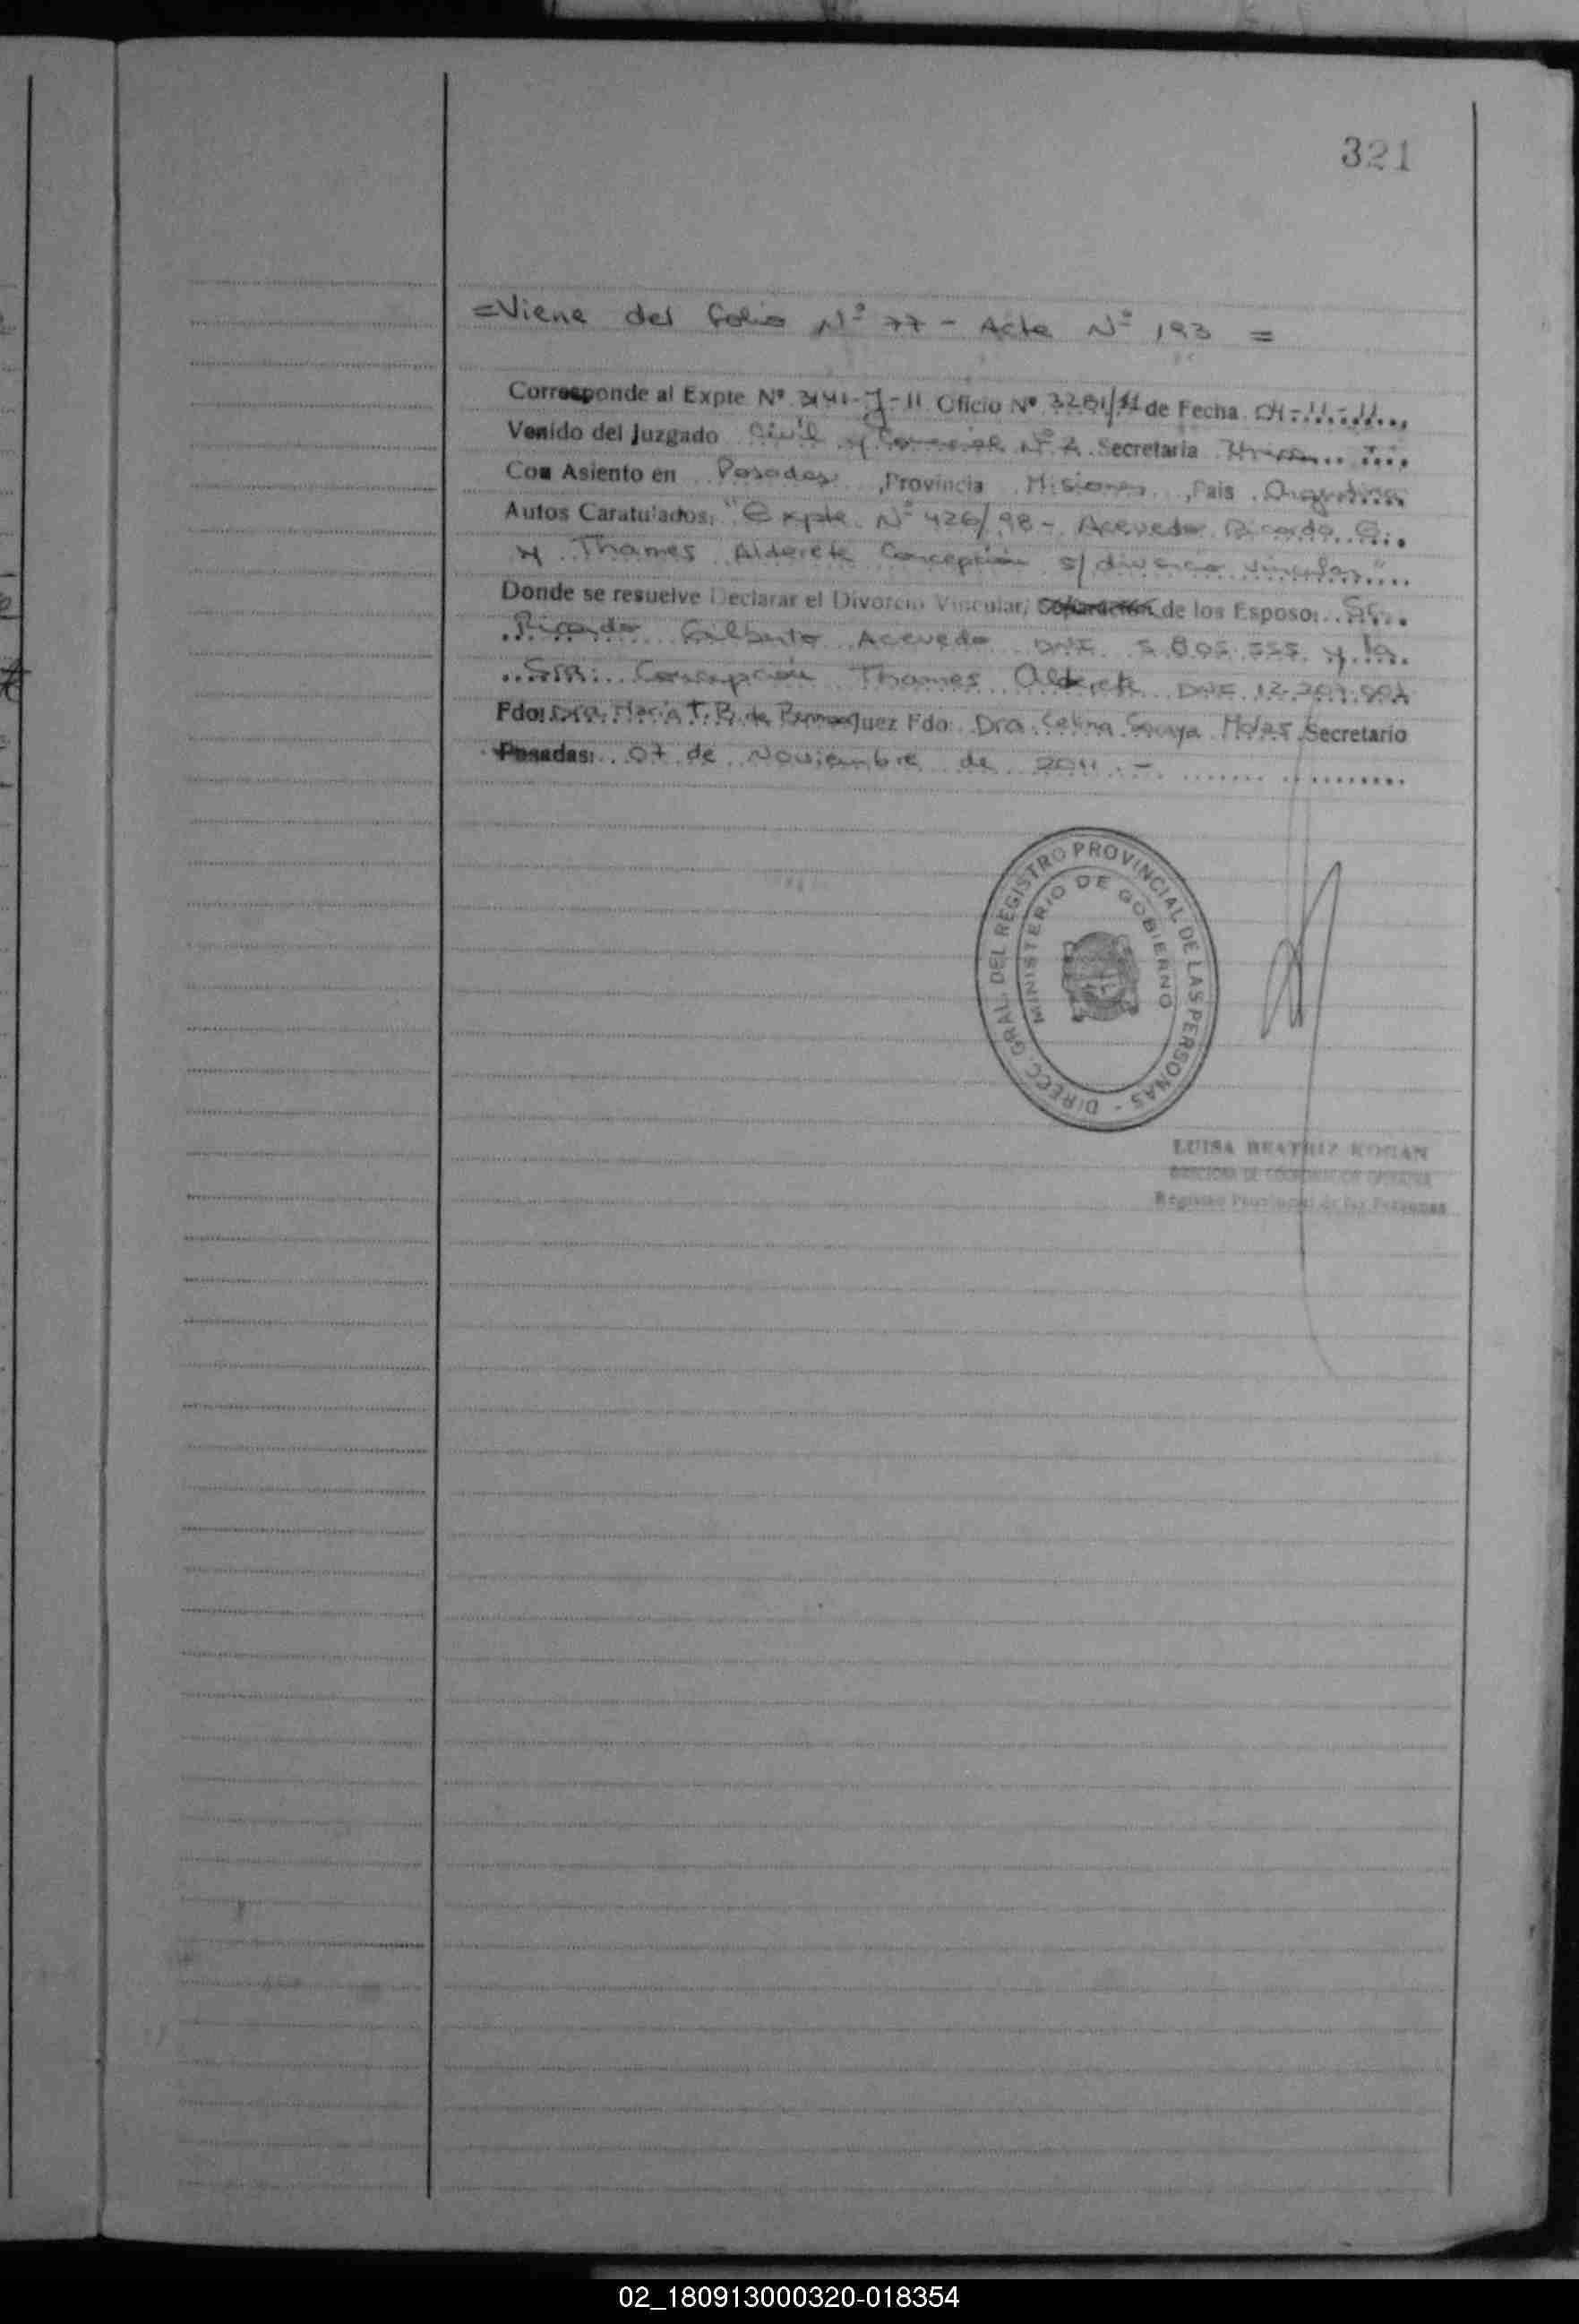 321
=Viene del folio Nº 77 - Acta Nº 193 =
Corresponde al Expte Nº 3141-J-11 Oficio Nº 3281/11 de Fecha 04-11-11
Venido del Juzgado Civil y Comercial Nº 2 Secretaria
Con Asiento en Posadas, Provincia Misiones, Pais Argentina
Autos Caratulados: "Expte. Nº 426/98 - Acevedo Ricardo G.
y Thames Alderete Concepción s/ divorcio vincular"
Donde se resuelve Declarar el Divorcio Vincular, Separación de los Esposo: Sr.
Ricardo Gilberto Acevedo DNI 5.805.555 y la
Sra: Concepción Thames Alderete DNI 12.207.
Fdo: Dra. María T. B. de Juez Fdo: Dra. Celina Soraya Molas Secretario
Posadas: 07 de Noviembre de 2011.-
DIRECC. GRAL. DEL REGISTRO PROVINCIAL DE LAS PERSONAS -
MINISTERIO DE GOBIERNO
LUISA BEATRIZ
DIRECTORA DE
Registro Provincial de las Personas
02_180913000320-018354